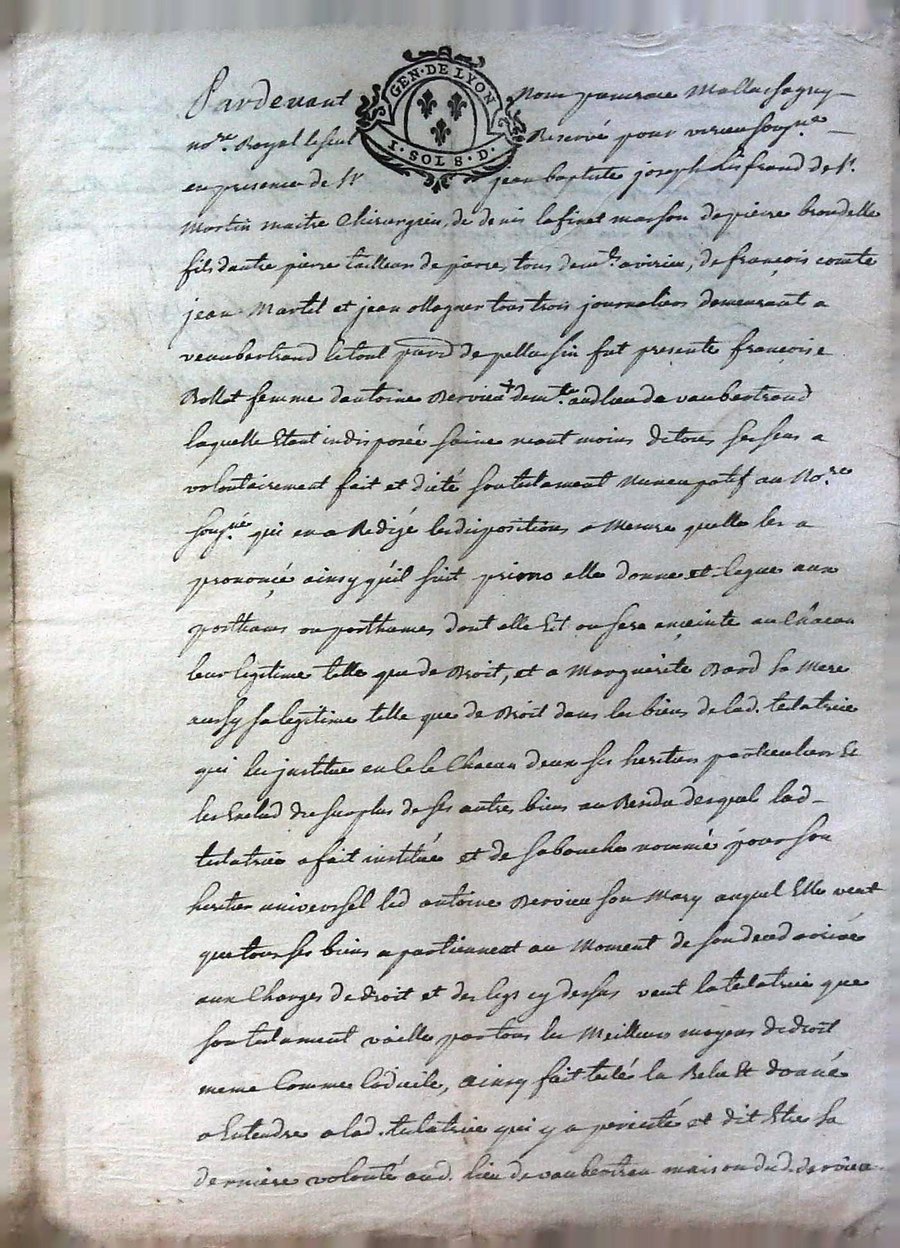 GEN·DE LYON
I·SOL 8·D·
Pardevant Nous
no.re Royal Reservé pour virieu sousg.né
en presence de S.r jean baptiste joseph de S.t
Martin maitre Chirurgien, de denis lafinet masson de pierre
fils d'autre pierre tailleur de pierres, tous dem.ts a virieu, de françois comte
jean Martel et jean Magner tous trois journaliers demeurant a
veaubertrand le tout de pellussin fut presente françoise
Rollet femme d'antoine Dervieu dem.te aud lieu de vaubertrand
laquelle Etant indisposée saine neant moins de tous ses sens a
volontairement fait et dicté son testament Nuncupatif au No.re
sousg.né qui en a Redigé les dispositions a Mesure quelle les a
prononcé ainsy qu'il suit primo elle donne et legue aux
posthumes ou posthumes dont elle Est ou sera enceinte au Chacun
leur legitime telle que de Droit, et a Marguerite Bard sa Mere
aussy sa legitime telle que de Droit dans les biens de lad. testatrice
qui les justitue en Cele Chacun d'eux ses heritiers particuliers Et
les Exclud du surplus de ses autres biens au Rendu desquel lad
testatrice a fait institué et de sa bouche nommé pour son
heritier universel led antoine Dervieu son Mary auquel Elle veut
que tous ses biens apartiennent au Moment de son deced arrivé
aux Charges de droit et des legs cy dessus veut la testatrice que
son testament vaille par tous les Meilleurs moyens de droit
meme Comme Codicile, ainsy fait testé lu Relu Et donné
a Entendre a lad. testatrice qui y a percisté et dit Etre sa
derniere volonté aud. lieu de vaubertrand maison dud. dervieu